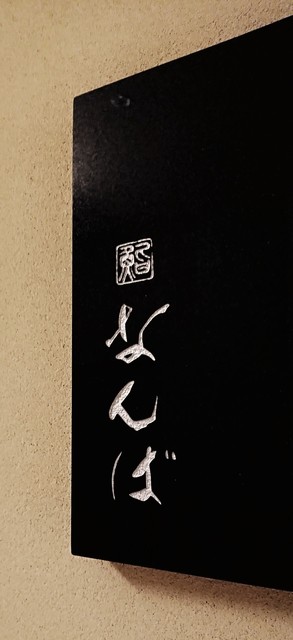 鮨
なんば